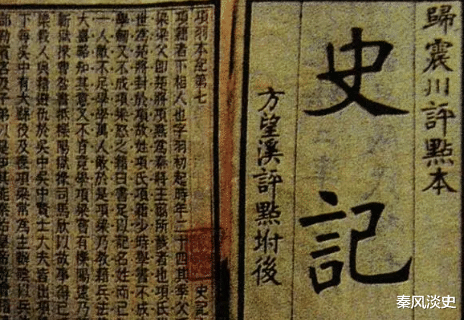 歸震川評點本
史記
方望溪評點坿後
史記
項羽本紀第七
項籍者下相人也字羽初起時年二十四其季父
梁梁父即楚將項燕爲秦將王翦所戮者也項氏
世爲楚將封於項故姓項氏項籍少時學書不成
學劍又不成項梁怒之籍曰書足以記名姓而已
一人敵不足學學萬人敵於是項梁乃教籍兵法
大喜略知其意又不肯竟學項梁嘗有櫟陽逮乃
蘄獄掾曹咎書抵櫟陽獄掾司馬欣以故事得已
梁殺人與籍避仇於吳中吳中賢士大夫皆出項
下每吳中有大繇役及喪項梁常爲主辦陰以兵
部勒賓客及子弟以是知其能秦始皇帝
秦风淡史